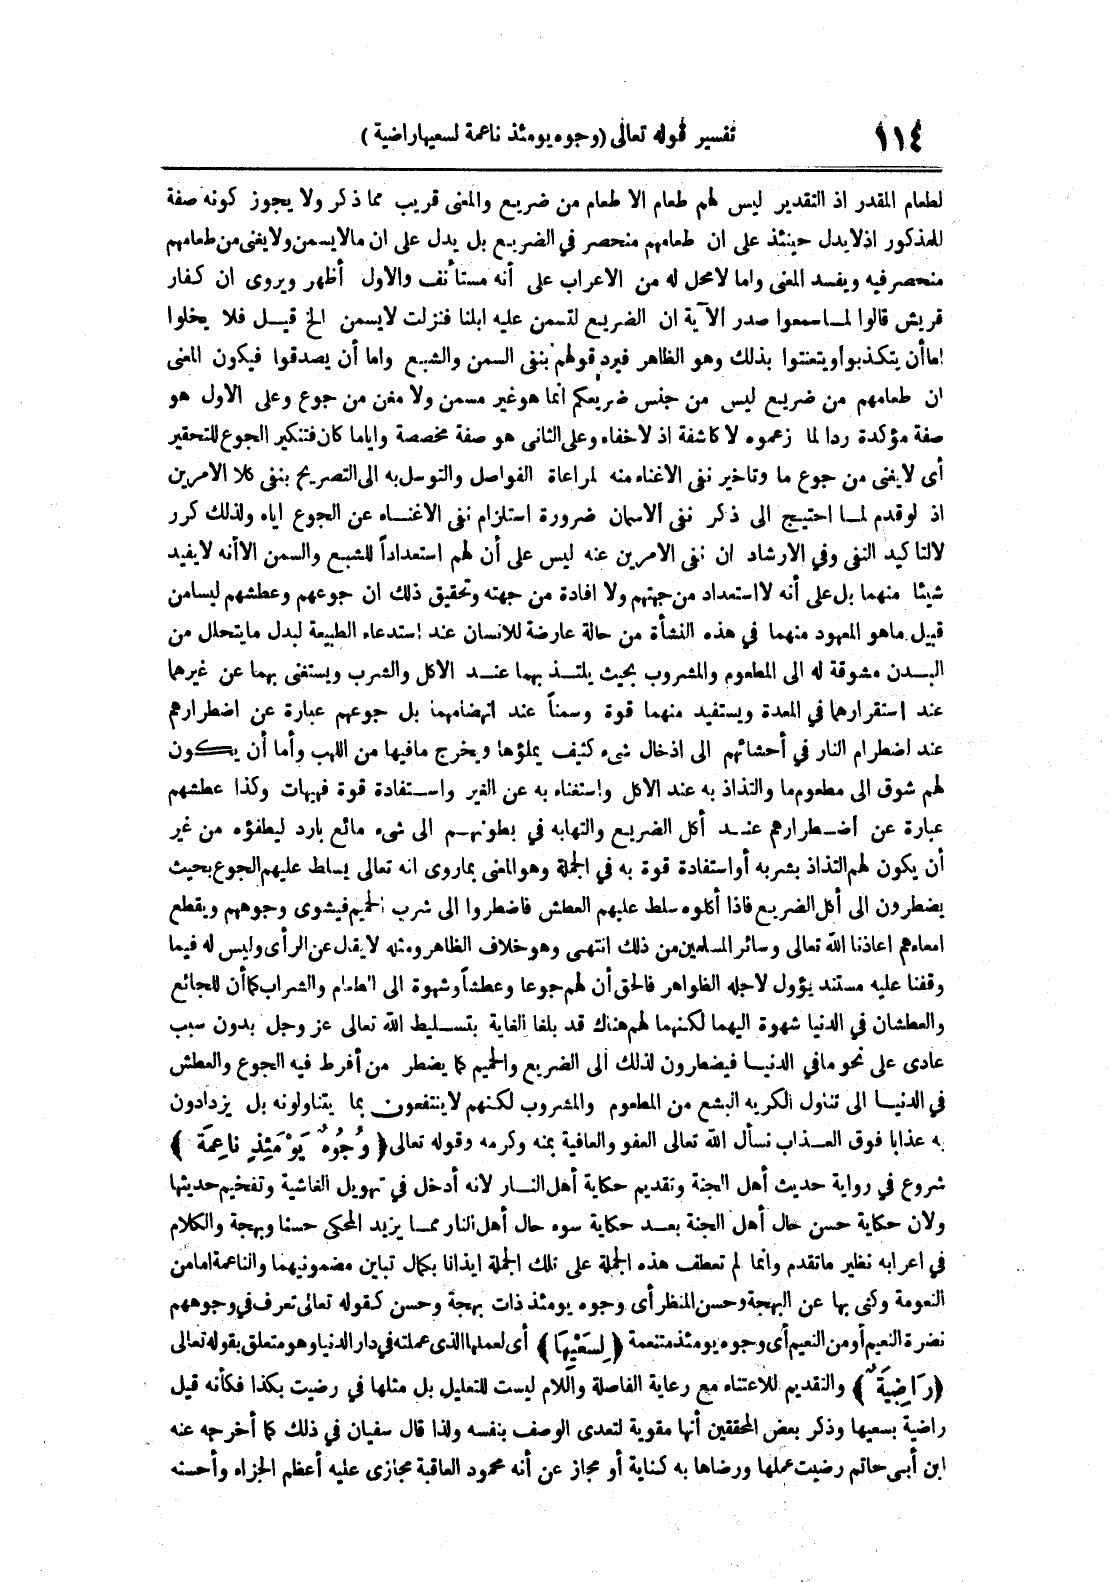 ١١٤
تفسير قوله تعالى (وجوه يومئذ ناعمة لسعيها راضية)
لطعام المقدر اذ التقدير ليس لهم طعام الا طعام من ضريع والمعنى قريب مما ذكر ولا يجوز كونه صفة
للمذكور اذ لا يدل حينئذ على ان طعامهم منحصر في الضريع بل يدل على ان مالا يسمن ولا يغنى من طعامهم
منحصر فيه ويفسد المعنى واما لا محل له من الاعراب على أنه مستأنف والاول أظهر ويروى ان كفار
قريش قالوا لما سمعوا صدر الآية ان الضريع لتسمن عليه ابلنا فنزلت لا يسمن الخ قيل فلا يخلوا
اما أن يتكذبوا أو يتعنتوا بذلك وهو الظاهر فيرد قولهم بنفى السمن والشبع واما أن يصدقوا فيكون المعنى
ان طعامهم من ضريع ليس من جنس ضريعكم انما هو غير مسمن ولا مغن من جوع وعلى الاول هو
صفة مؤكدة ردا لما زعموه لا كاشفة اذ لا خفاء وعلى الثانى هو صفة مخصصة واياما كان فتنكير الجوع للتحقير
أى لا يغنى من جوع ما وتاخير نفى الاغناء منه لمراعاة الفواصل والتوسل به الى التصريح بنفى كلا الامرين
اذ لو قدم لما احتيج الى ذكر نفى الاسمان ضرورة استلزام نفى الاغناء عن الجوع اياه ولذلك كرر
لالتا كيد النفى وفي الارشاد ان نفى الامرين عنه ليس على أن لهم استعداداً للشبع والسمن الا أنه لا يفيد
شيئا منهما بل على أنه لا استعداد من جهتهم ولا افادة من جهته وتحقيق ذلك ان جوعهم وعطشهم ليسا من
قبيل ماهو المعهود منهما في هذه النشأة من حالة عارضة للانسان عند استدعاء الطبيعة لبدل ما يتحلل من
البدن مشوقة له الى المطعوم والمشروب بحيث يلتذ بهما عند الاكل والشرب ويستغنى بهما عن غيرهما
عند استقرارهما في المعدة ويستفيد منهما قوة وسمناً عند انهضامهما بل جوعهم عبارة عن اضطرارهم
عند اضطرام النار في أحشائهم الى ادخال شىء كثيف يملؤها ويخرج مافيها من اللهب وأما أن يكون
لهم شوق الى مطعوم ما والتذاذ به عند الاكل واستغناء به عن الغير واستفادة قوة فهيهات وكذا عطشهم
عبارة عن أضطرارهم عند أكل الضريع والتهابه في بطونهم الى شىء مائع بارد ليطفؤه من غير
أن يكون لهم التذاذ بشربه أو استفادة قوة به في الجملة وهو المعنى بماروى انه تعالى يسلط عليهم الجوع بحيث
يضطرون الى أكل الضريع فاذا أكلوه سلط عليهم العطش فاضطروا الى شرب الحميم فيشوى وجوههم ويقطع
امعاءهم اعاذنا الله تعالى وسائر المسلمين من ذلك انتهى وهو خلاف الظاهر ومثله لا يقل عن الرأى وليس له فيما
وقفنا عليه مستند يؤول لاجله الظواهر فالحق أن لهم جوعا وعطشاً وشهوة الى الطعام والشراب كما أن للجائع
والعطشان في الدنيا شهوة اليهما لكنهما لهم هناك قد بلغا الغاية بتسليط الله تعالى عز وجل بدون سبب
عادى على نحو مافي الدنيا فيضطرون لذلك الى الضريع والحميم كما يضطر من أفرط فيه الجوع والعطش
في الدنيا الى تناول الكريه البشع من المطعوم والمشروب لكنهم لا ينتفعون بما يتناولونه بل يزدادون
به عذابا فوق العذاب نسأل الله تعالى العفو والعافية بمنه وكرمه وقوله تعالى ﴿ وُجُوهٌ يَوْمَئِذٍ ناعِمَةٌ ﴾
شروع في رواية حديث أهل الجنة وتقديم حكاية أهل النار لانه أدخل في تهويل الغاشية وتفخيم حديثها
ولان حكاية حسن حال أهل الجنة بعد حكاية سوء حال أهل النار مما يزيد المحكى حسنا وبهجة والكلام
في اعرابه نظير ماتقدم وانما لم تعطف هذه الجملة على تلك الجملة ايذانا بكمال تباين مضمونيهما والناعمة اما من
النعومة وكنى بها عن البهجة وحسن المنظر أى وجوه يومئذ ذات بهجة وحسن كقوله تعالى تعرف في وجوههم
نضرة النعيم أو من النعيم أى وجوه يومئذ متنعمة ﴿ لِسَعْيِهَا ﴾ أى لعملها الذى عملته في دار الدنيا وهو متعلق بقوله تعالى
﴿ رَاضِيَةٌ ﴾ والتقديم للاعتناء مع رعاية الفاصلة واللام ليست للتعليل بل مثلها في رضيت بكذا فكأنه قيل
راضية بسعيها وذكر بعض المحققين أنها مقوية لتعدى الوصف بنفسه ولذا قال سفيان في ذلك كما أخرجه عنه
ابن أبى حاتم رضيت عملها ورضاها به كناية أو مجاز عن أنه محمود العاقبة مجازى عليه أعظم الجزاء وأحسنه